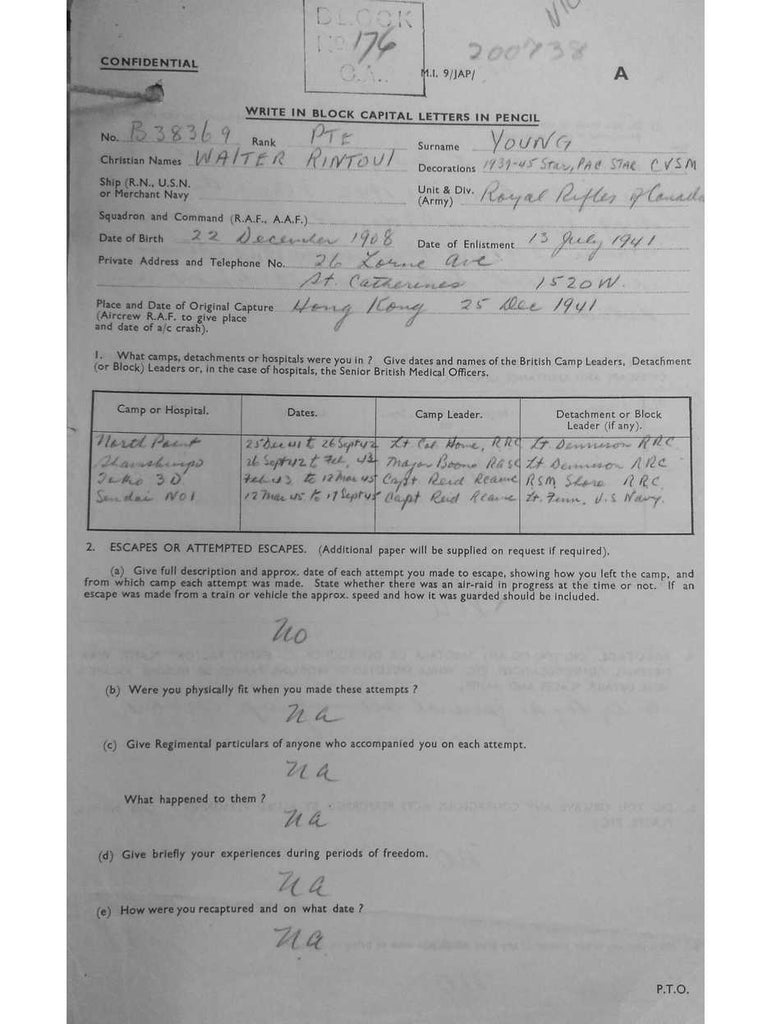 BLOCK
No. 176
C.A.
200738
CONFIDENTIAL
M.I. 9/JAP/
A
WRITE IN BLOCK CAPITAL LETTERS IN PENCIL
No. B38369 Rank PTE Surname YOUNG
Christian Names WALTER RINTOUL Decorations 1939-45 Star, PAC STAR CVSM
Ship (R.N., U.S.N. or Merchant Navy
Unit & Div. (Army) Royal Rifles of Canada
Squadron and Command (R.A.F., A.A.F.)
Date of Birth 22 December 1908 Date of Enlistment 13 July 1941
Private Address and Telephone No. 26 Lorne Ave
St. Catherines 1520W.
Place and Date of Original Capture Hong Kong 25 Dec 1941
(Aircrew R.A.F. to give place
and date of a/c crash).
1. What camps, detachments or hospitals were you in ? Give dates and names of the British Camp Leaders, Detachment
(or Block) Leaders or, in the case of hospitals, the Senior British Medical Officers.
Camp or Hospital. Dates. Camp Leader. Detachment or Block Leader (if any).
North Point 25 Dec 41 to 26 Sept 42 Lt Col Home, RRC Lt Dennison RRC
Shamshuipo 26 Sept 42 to Feb, 43 Major Boone RASC Lt Dennison RRC
3D Feb 43 to 12 Mar 45 Capt Reid Rcamc RSM Shore RRC
Sendai NO1 12 Mar 45 to 17 Sept 45 Capt Reid Rcamc Lt. Finn, U.S Navy.
2. ESCAPES OR ATTEMPTED ESCAPES. (Additional paper will be supplied on request if required).
(a) Give full description and approx. date of each attempt you made to escape, showing how you left the camp, and
from which camp each attempt was made. State whether there was an air-raid in progress at the time or not. If an
escape was made from a train or vehicle the approx. speed and how it was guarded should be included.
No
(b) Were you physically fit when you made these attempts ?
na
(c) Give Regimental particulars of anyone who accompanied you on each attempt.
na
What happened to them ?
na
(d) Give briefly your experiences during periods of freedom.
na
(e) How were you recaptured and on what date ?
na
P.T.O.